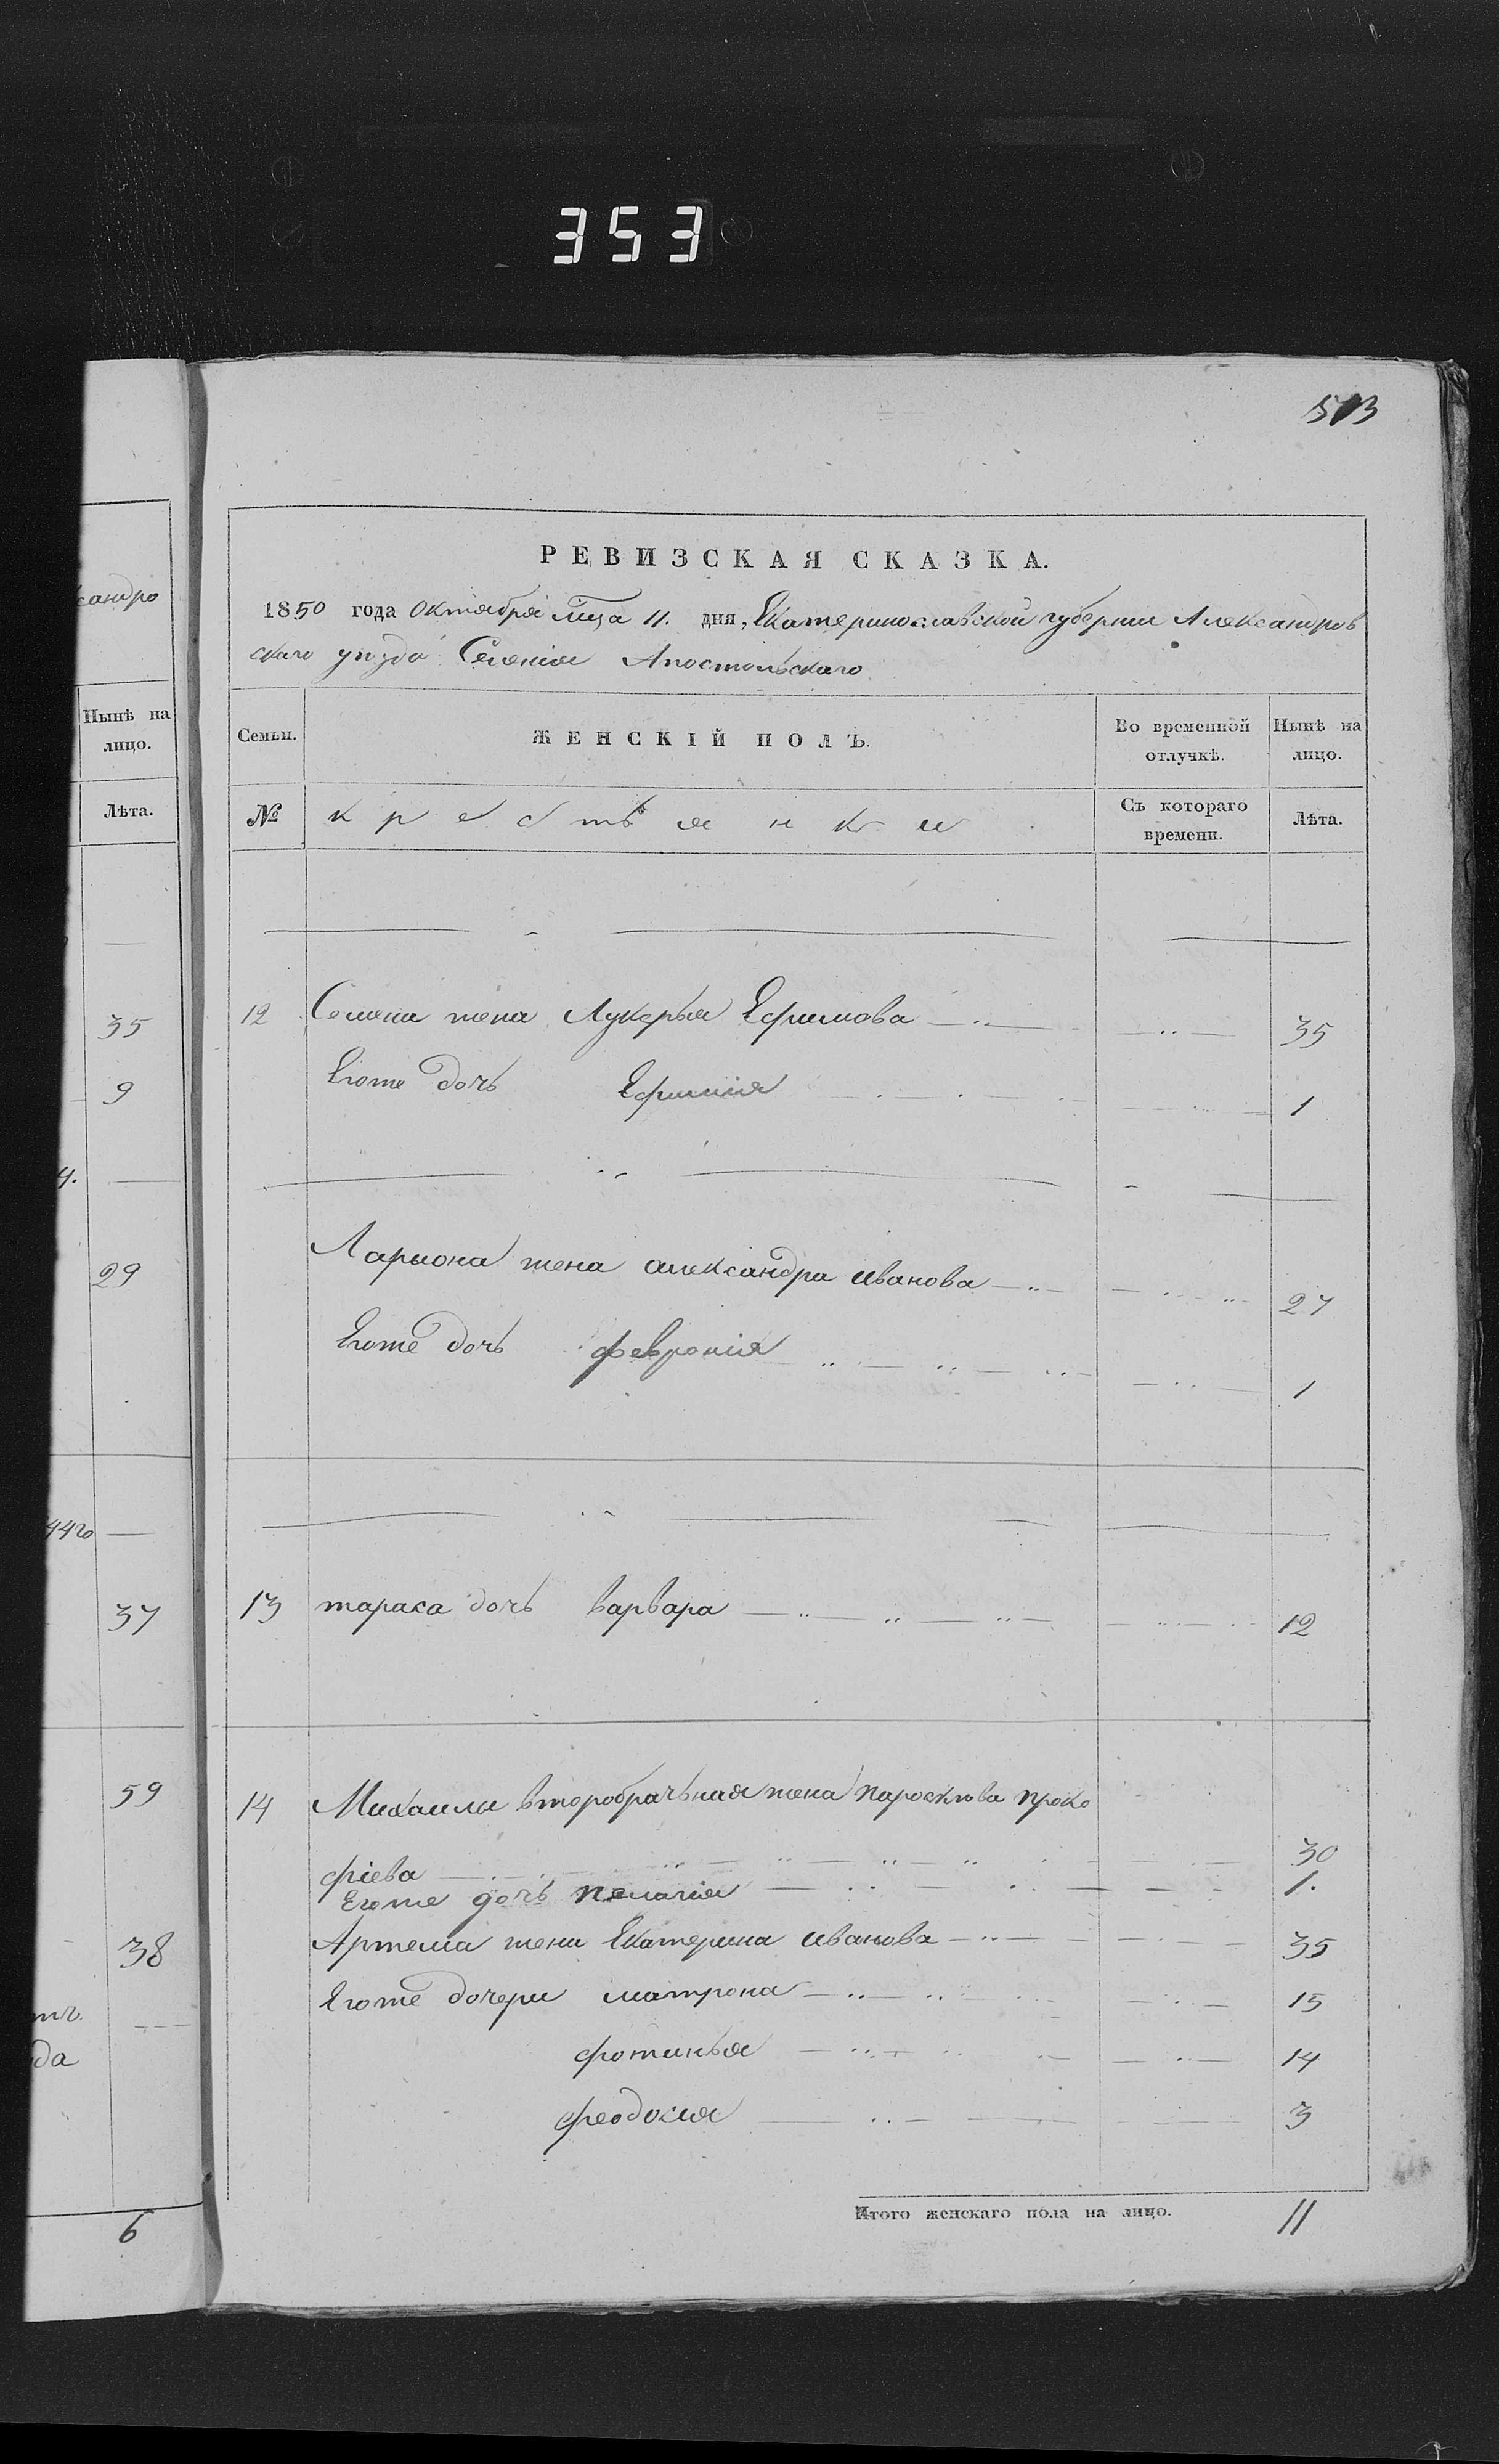 353
513
сандро
Нынѣ на
лицо.
Лѣта.
35
9
4.
29
37
59
38
да
6
РЕВИЗСКАЯ СКАЗКА.
1850 года Октября мца 11. дня, Екатеринославской губернии Александров
скаго уѣзда Селенія Апостольскаго
Семьи. ЖЕНСКІЙ ПОЛЪ. Во временной отлучкѣ. Нынѣ на лицо.
№ крестьянки Съ котораго времени. Лѣта.
12 Семена жена Лукерья Ефимова 35
Егоже дочь Ефимия 1
Лариона жена александра иванова 27
Егоже дочь феврония 1
13 тараса дочь варвара 12
14 Михаила второбрачьная жена параскива проко
фіева 30
Егоже дочь пелагия 1.
Артема жена Екатерина иванова 35
Егоже дочери матрона 15
фотинья 14
феодосия 3
Итого женскаго пола на лицо. 11